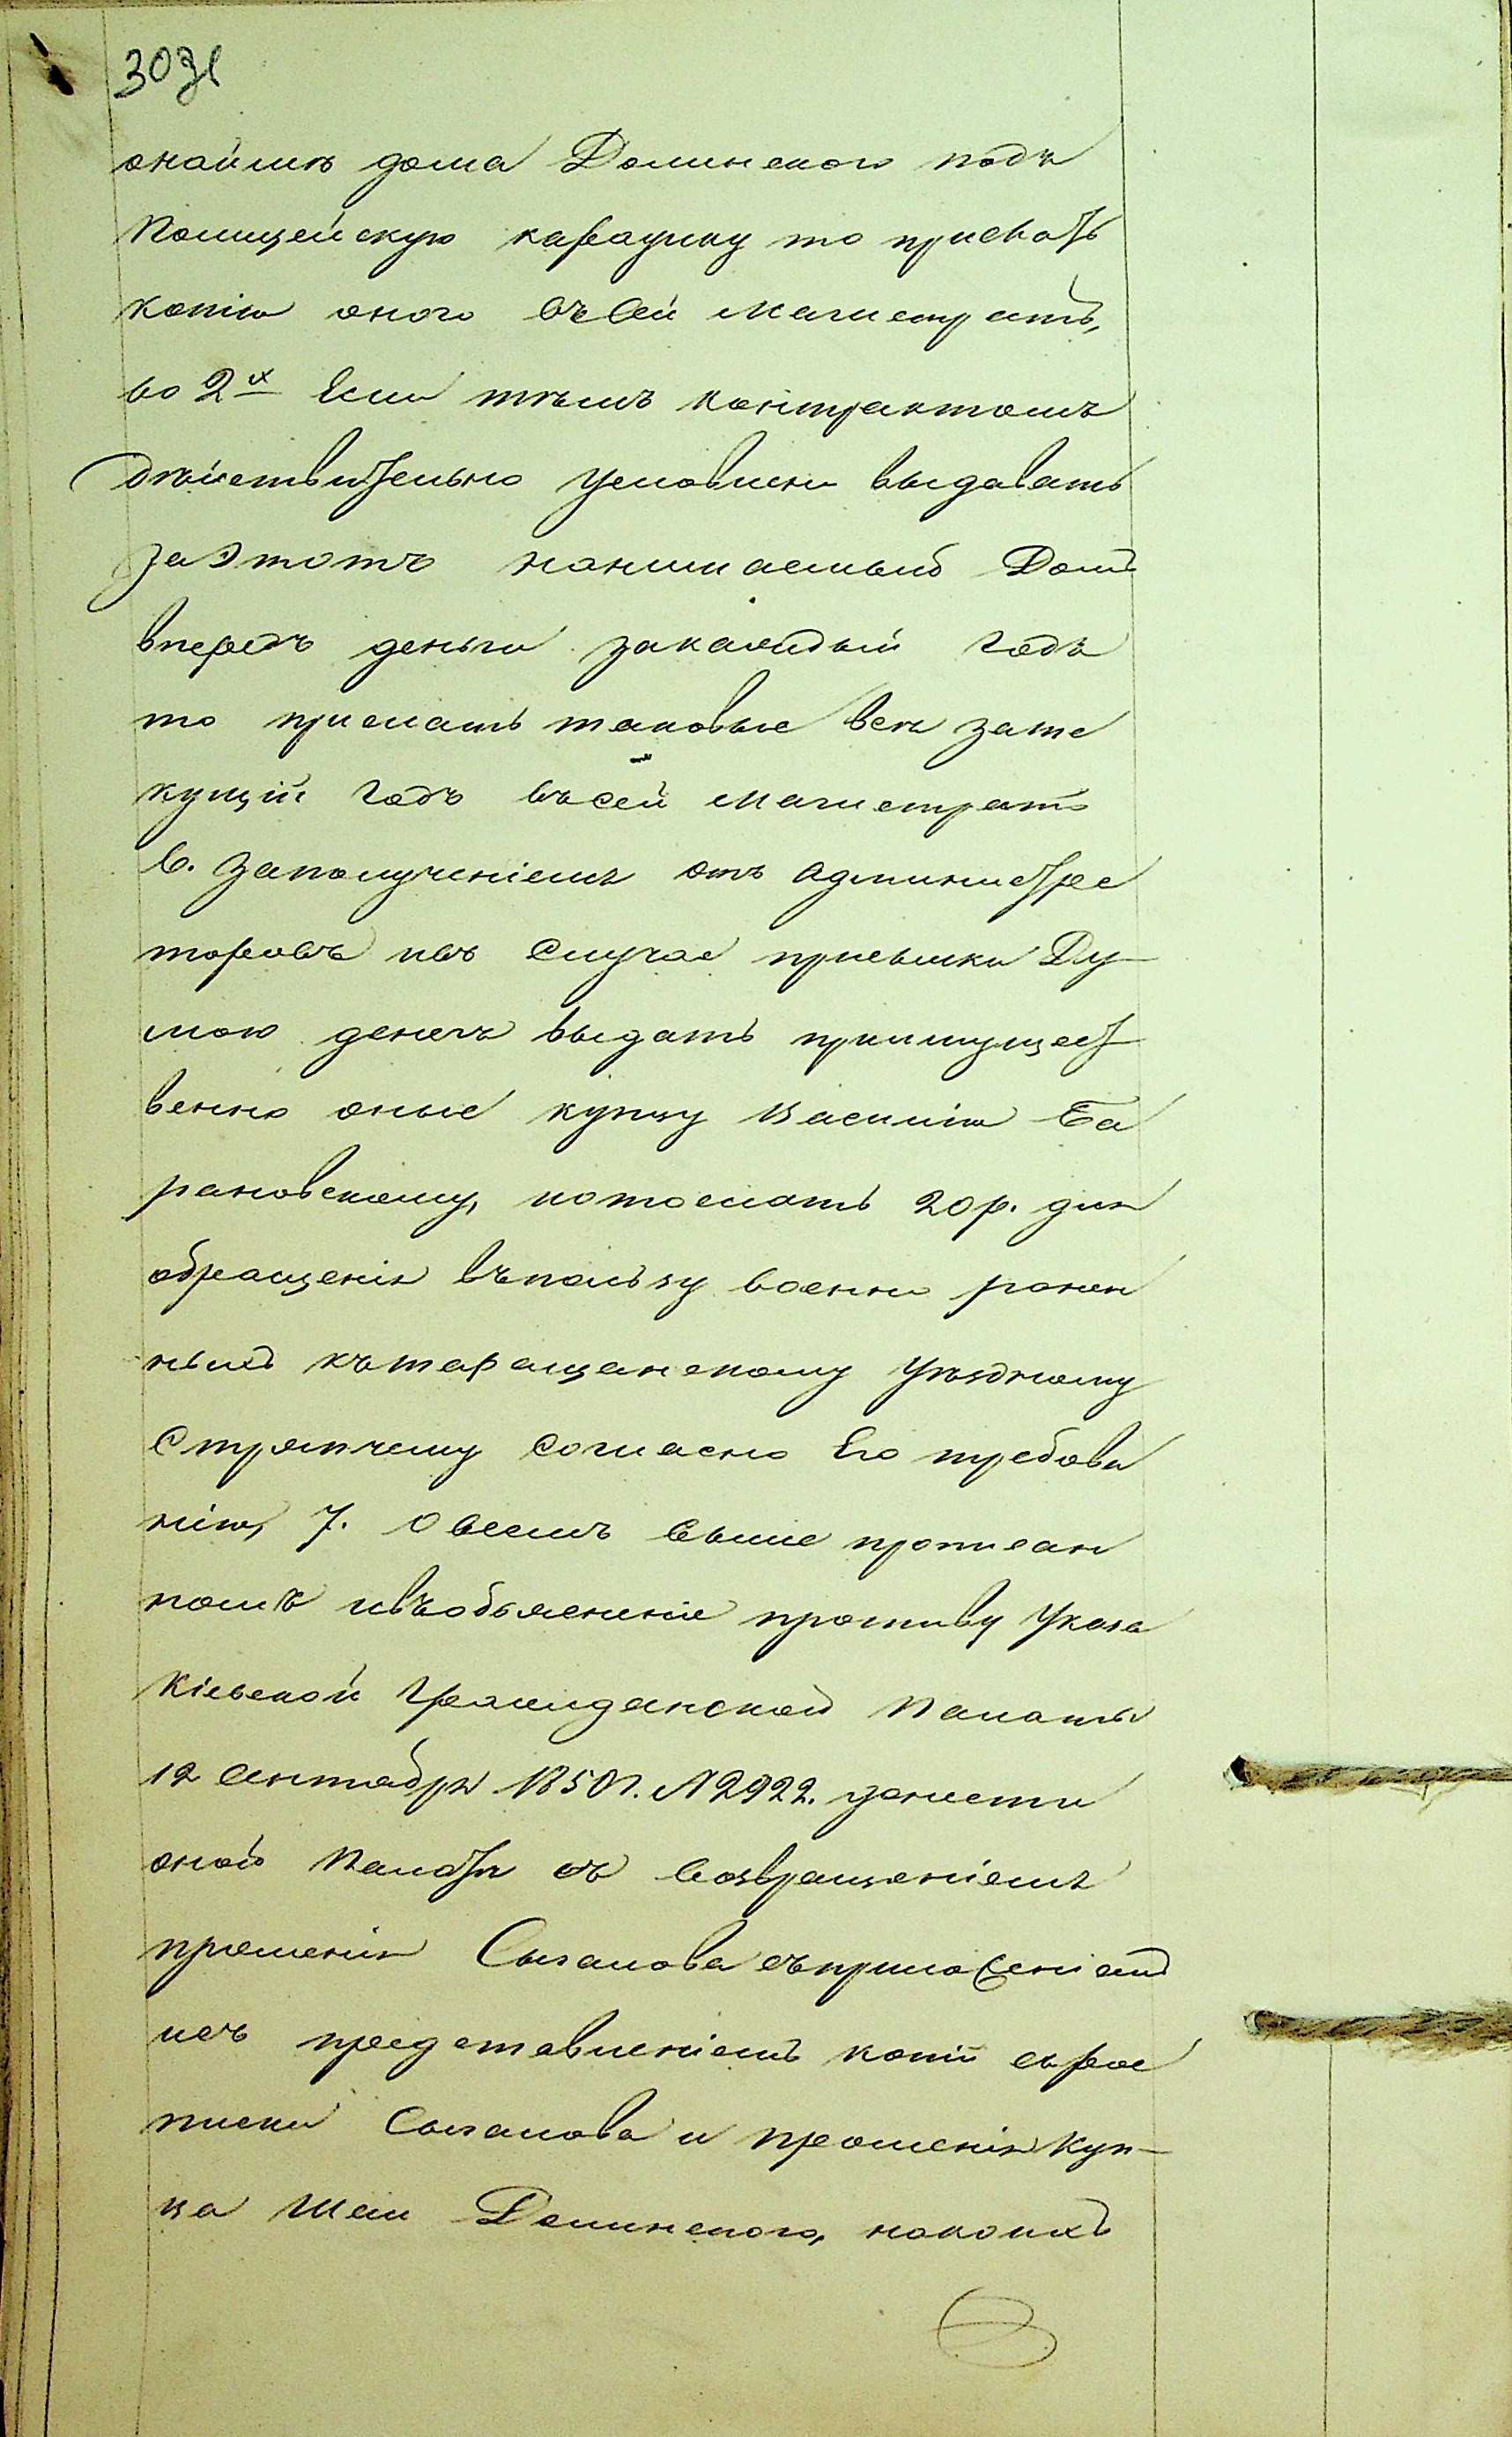 онаймѣ дома Долинского подъ
Полицейскую караулку то прислать
копію оного въ сей Магистратъ,
во 2х Если тѣмъ контрактомъ
дѣйствительно условлен выдавать
заэтотъ нанимаемый Домъ
впередъ деньги закаждый годъ
то прислать таковые всѣ зате
кущій годъ въсей магистратъ
6. Заполученіемъ отъ администра
торовъ ивъ Случае присылки Ду-
мою денегъ выдать приимущест
венно оные купцу Василію Ба
рановскому, потослать 20 р. для
обращенія въпользу военно ранен
ныхъ къ таращанскому Уѣздному
Стряпчему Согласно Его требова
нію, 7. О всемъ выше прописан
номъ ивъобъясненіе противу Указа
Кіевской Гражданской Палаты
12 Сентября 1850 г. № 2922. донести
оной Палатѣ съ возвращеніемъ
прошенія Сыгалова съприложеніемъ
исъ представленіемъ копій съ рос
писки Сыгалова и прошенія Куп-
ца Шаи Долинского, накоихъ